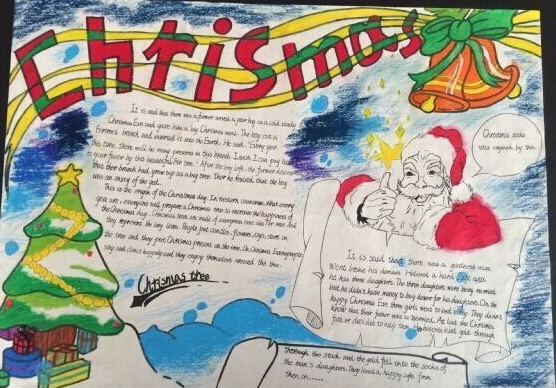 Christmas
It is said that there was a farmer served a poor boy in a cold snowy
Christmas Eve and gave him a big Christmas meal. The boy cut a
branch and inserted it into the Earth. He said, "Every year
this time, there will be many presents in this branch. I wish I can pay back
to your favor by this beautiful Fir-tree." After the boy left, the farmer discover
that their branch had grown up as a big tree. Then he realised, that the boy
was an of the god.
This is the origin of the Christmas day. In western countries, What every
you are, everyone will prepare a Christmas tree to increase the happiness of
the Christmas day. Christmas trees are made of evergreen tree like Fir-tree and
they represent the long lives. People put candles, flowers, toys, stars on
the tree and they put Christmas present on the tree. On Christmas Eve, people
sing and dance happily and they enjoy themselves around the tree.
Christmas tree
Christmas socks
was original by this.
It is said that there was a
Went broke his domain. Helived a hard life with
he has three daughters. The three daughters were being married
but he didn't have money to buy for his daughters. On the
happy Christmas Eve three girls went to bed early. They didn't
know that their father was so worried. At last the Christmas
father decided to help them. gold through
Thorough the stock and the gold fell into the socks of
the man's daughters. They lived a happy life from
then on......